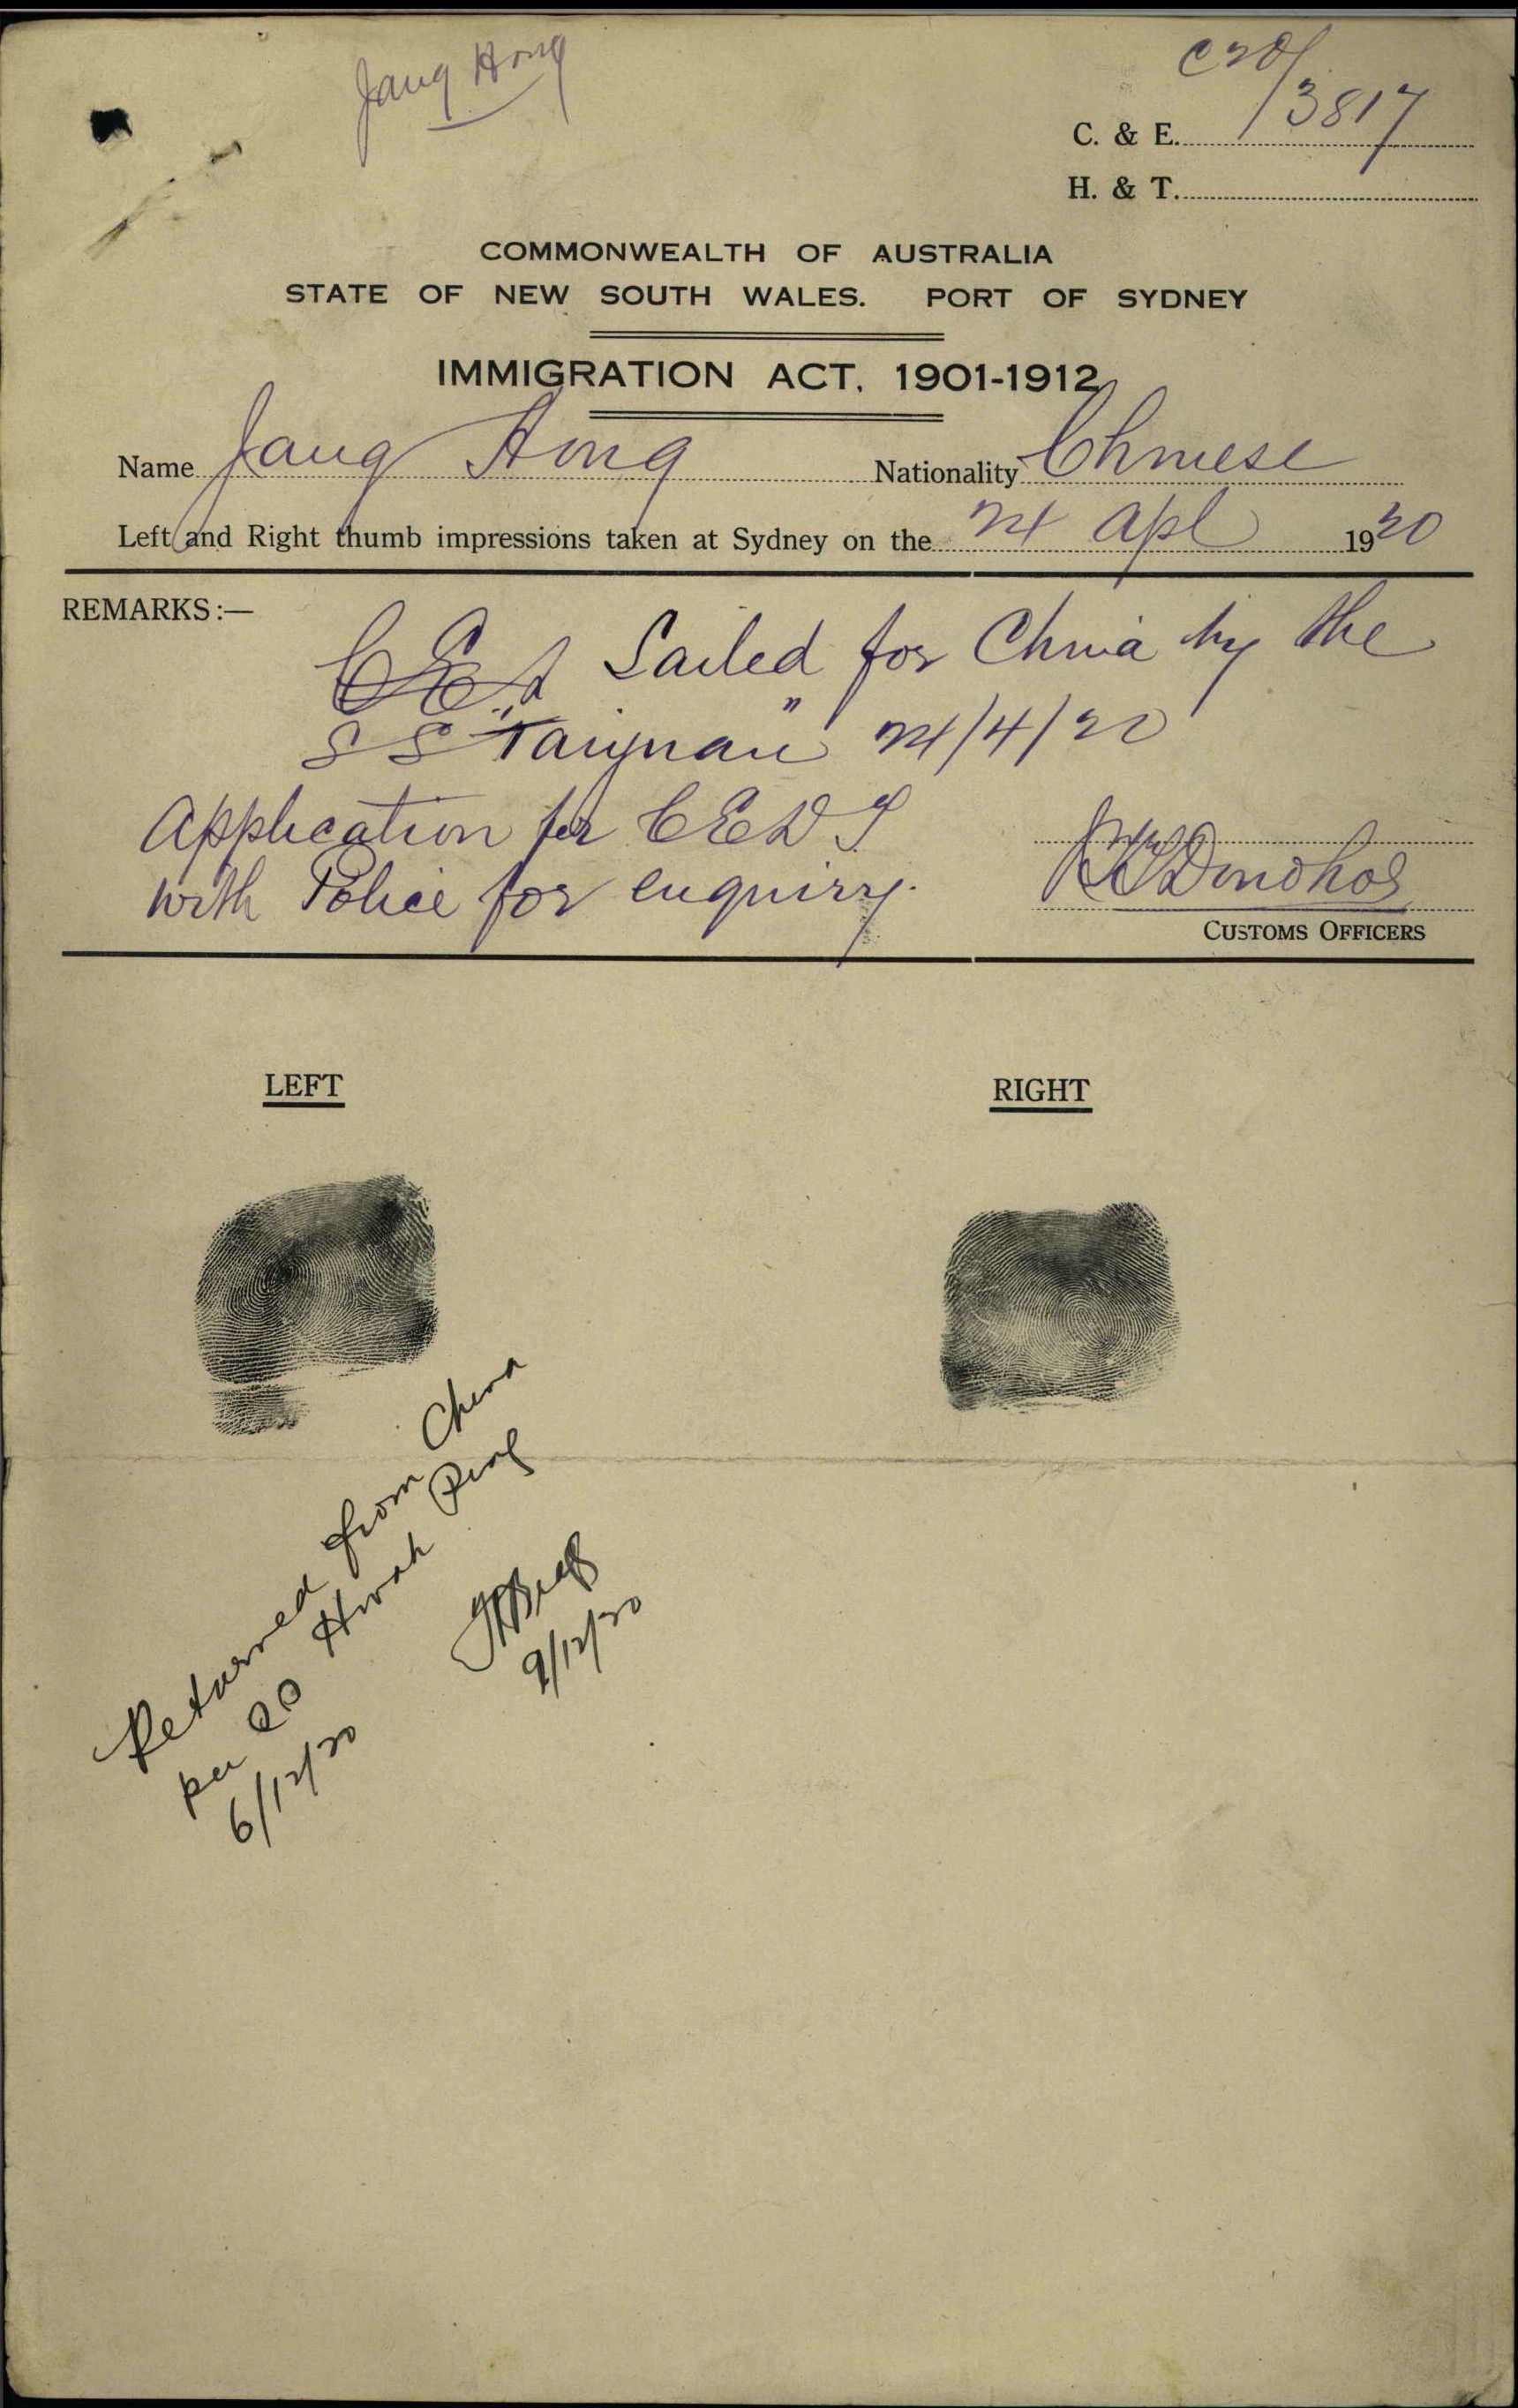 Jang Hong
C20/3817
C. & E.
H. & T.
COMMONWEALTH OF AUSTRALIA
STATE OF NEW SOUTH WALES. PORT OF SYDNEY
IMMIGRATION ACT, 1901-1912
Name Jang Hong Nationality Chinese
Left and Right thumb impressions taken at Sydney on the 24 Apl 1920
REMARKS:—
Sailed for China by the
SS "Taiyuan" 24/4/20
Application for CEDT
with Police for enquiry.
Donohoe
CUSTOMS OFFICERS
LEFT RIGHT
Returned from China
per Hwah Ping
6/12/20
9/12/20